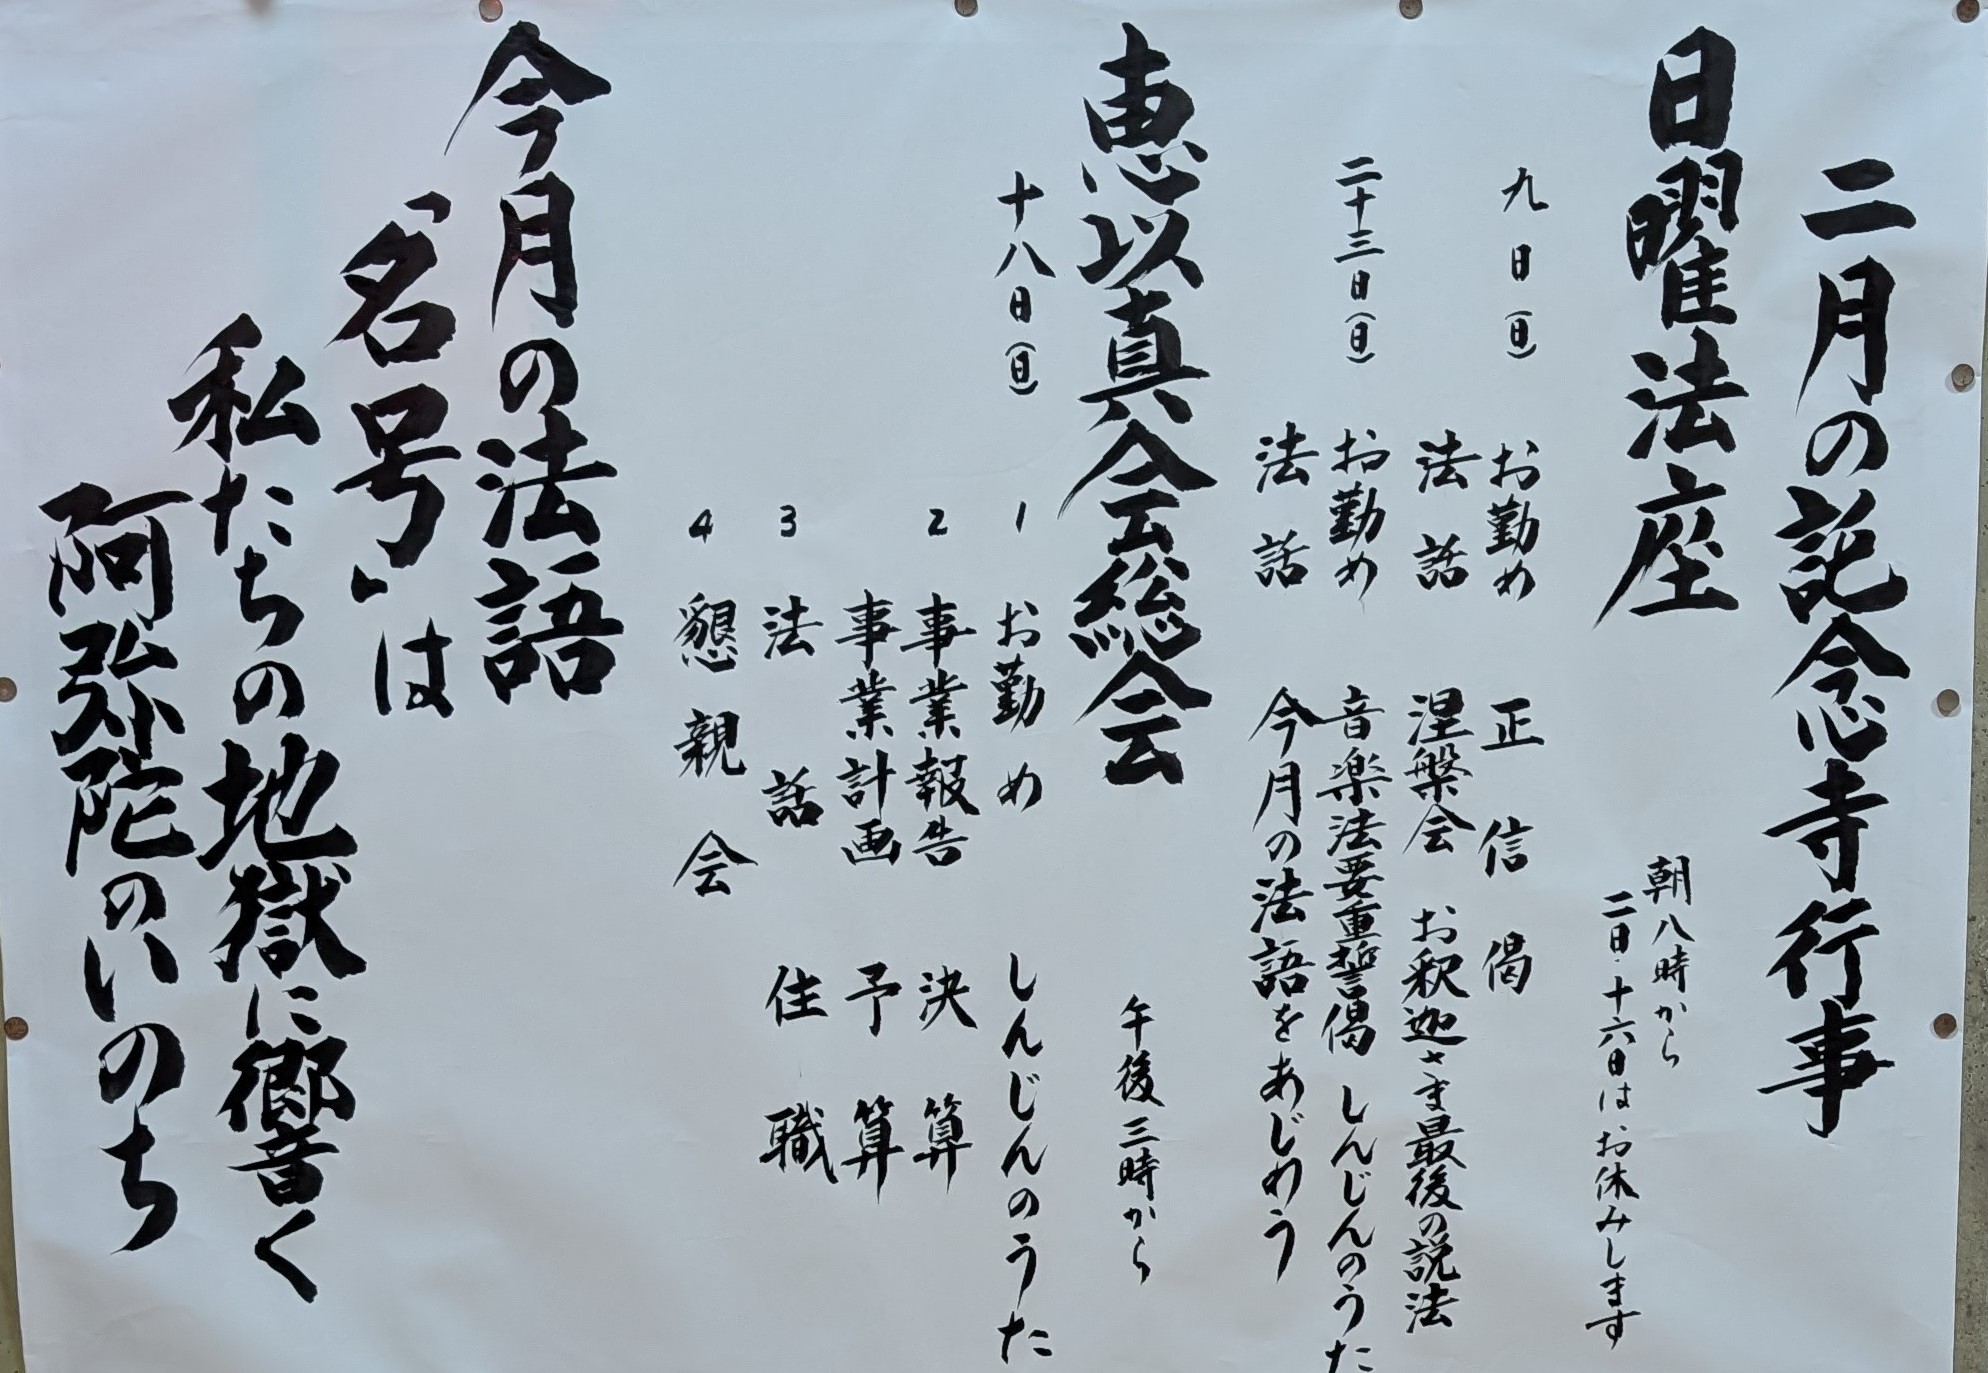 二月の記念寺行事
日曜法座
朝八時から
二日・十六日はお休みします
九日(日) お勤め 正信偈
法話 涅槃会 お釈迦さま最後の説法
二十三日(日) お勤め 音楽法要重誓偈 しんじんのうた
法話 今月の法語をあじわう
恵以真会総会 午後三時から
十八日(日) 1 お勤め しんじんのうた
2 事業報告 決算
事業計画 予算
3 法話 住職
4 懇親会
今月の法語
「名号」は
私たちの地獄に響く
阿弥陀のいのち